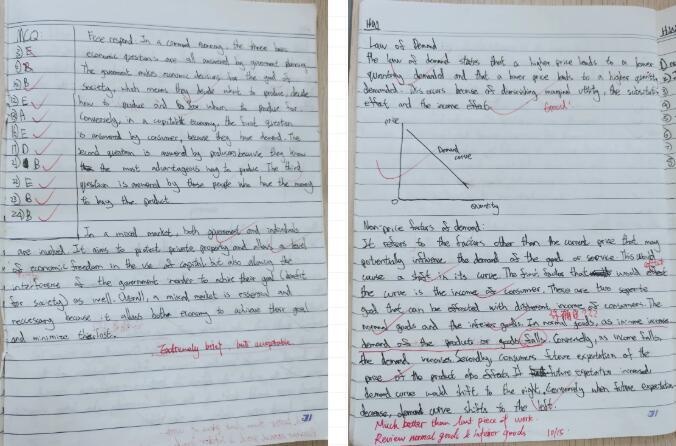 MCQ
Free respond: In a command economy, the three basic
economic questions are all answered by government planning
The government makes economic decisions for the goal of
society, which means they decide what to produce, decide
how to produce and for whom to produce for.
Conversely, in a capitalist economy, the first question
is answered by consumer, because they have demand. The
second question is answered by producers because they know
the most advantageous way to produce. The third
question is answered by these people who have the money
to buy the product.
E
B
B
E
A
E
D
B
E
B
24) B
In a mixed market, both government and individuals
are involved. It aims to protect private property and allows a level
of economic freedom in the use of capital but also allows the
interference of the government to achieve their goal (benefit
for society) as well. Overall, a mixed market is essential and
neccessary because it allows both economy to achieve their goal
and minimize
Extremely brief, but acceptable
HW
Law of Demand:
the law of demand states that a higher price leads to a lower
quantity demanded and that a lower price leads to a higher quantity
demanded. This occurs because of diminishing marginal utility, the substitution
effect and the income effect.
Good!
Price
Demand
curve
0
Quantity
Non-price factors of demand:
It refers to the factors other than the current price that may
potentially influence the demand of the good or service. This would
cause a shift in its curve. The first factor that would effect
the curve is the income of consumer. There are two seperte
good that can be effected with different income of consumers. The
normal goods and the inferior goods. In normal goods, as income increase
demand of the products or goods falls. Conversely, as income falls,
the demand increases. Secondly, consumers future expectation of the
price of the product also effects it. If future expectation increased,
demand curve would shift to the right. Conversely when future expectation
decrease, demand curve shifts to the left.
Much better than last piece of work.
Review normal goods & inferior goods 10/15
HW